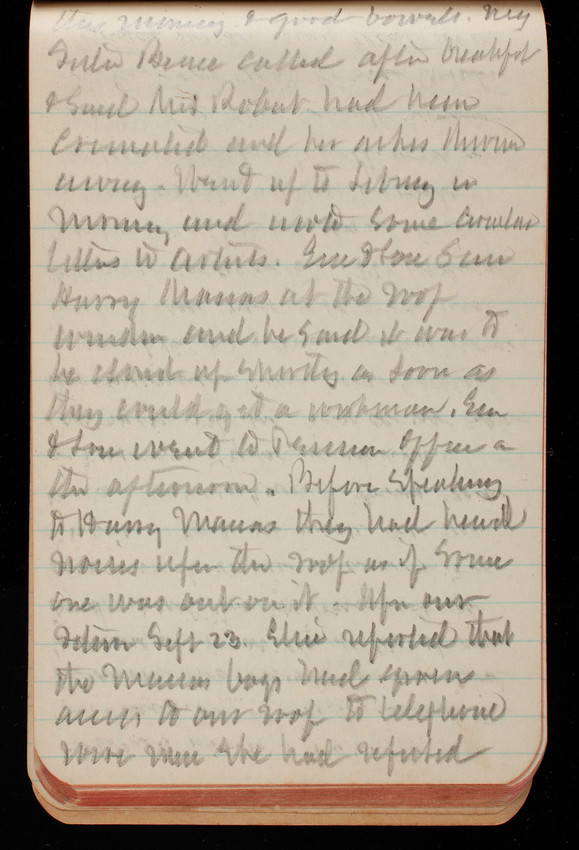 this morning & good bowels. Mrs
Julia Bruce called after breakfast
& said Mrs Robert had been
cremated and her ashes thrown
away. Went up to Library in
Morning and wrote some circular
letters to artists. Gen & Lou saw
Harry Manas at the roof
window and he said it was to
be closed up shortly as soon as
they could get a workman. Gen
& Lou went to Pension Office in
the afternoon. Before speaking
to Harry Manas they had heard
noises upon the roof as if some
one was out on it. Upon our
return Sept 23. Elsie reported that
the Manas boys had
across to our roof to telephone
wire since she had reported